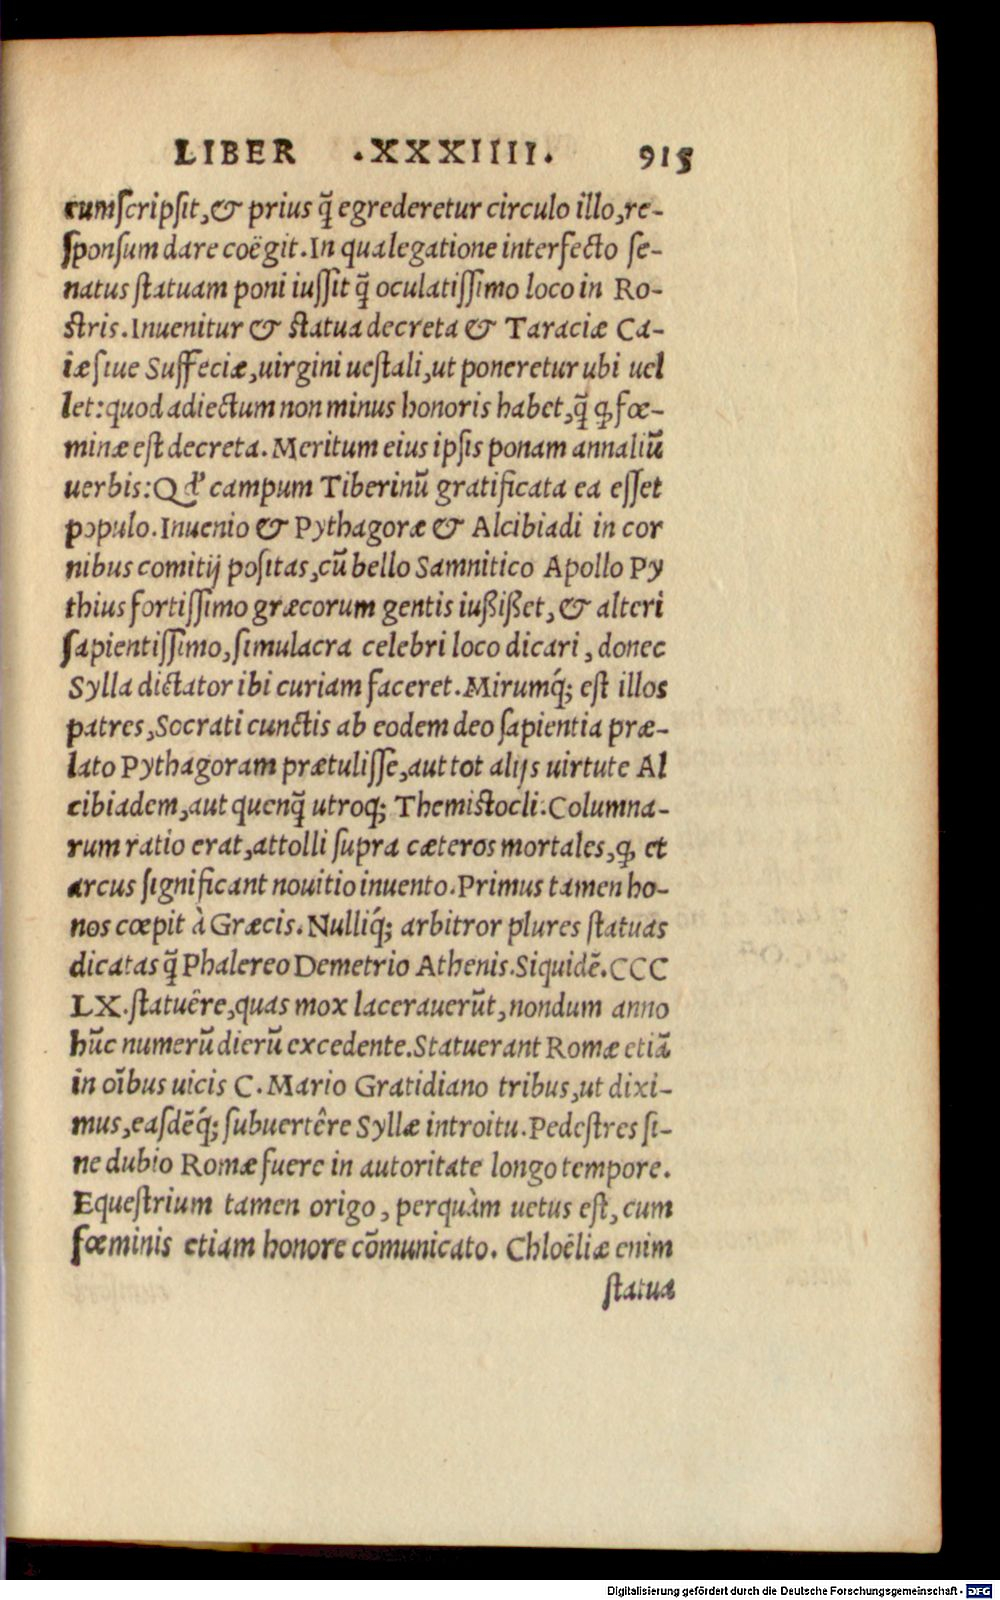 LIBER .XXXIIII. 915
cumſcripſit,& prius q̃ egrederetur circulo illo,re-
ſponſum dare coëgit.In qua legatione interfecto ſe-
natus ſtatuam poni iuſſit q̃ oculatiſſimo loco in Ro-
ſtris.Inuenitur & ſtatua decreta & Taraciæ Ca-
iæ ſiue Suffeciæ,uirgini ueſtali,ut poneretur ubi uel
let:quod adiectum non minus honoris habet,q̃ ꝙ fœ-
minæ eſt decreta.Meritum eius ipſis ponam annaliũ
uerbis:Qď campum Tiberinũ gratificata ea eſſet
populo.Inuenio & Pythagoræ & Alcibiadi in cor
nibus comitij poſitas,cũ bello Samnitico Apollo Py
thius fortiſſimo græcorum gentis iußißet,& alteri
ſapientiſſimo,ſimulacra celebri loco dicari,donec
Sylla dictator ibi curiam faceret.Mirumq́; eſt illos
patres,Socrati cunctis ab eodem deo ſapientia præ-
lato Pythagoram prætuliſſe,aut tot alijs uirtute Al
cibiadem,aut quenq̃ utroq; Themiſtocli.Columna-
rum ratio erat,attolli ſupra cæteros mortales,ꝙ et
arcus ſignificant nouitio inuento.Primus tamen ho-
nos cœpit à Græcis.Nulliq́; arbitror plures ſtatuas
dicatas q̃ Phalereo Demetrio Athenis.Siquidẽ.CCC
LX.ſtatuêre,quas mox lacerauerũt,nondum anno
hũc numerũ dierũ excedente.Statuerant Romæ etiã
in oĩbus uicis C.Mario Gratidiano tribus,ut dixi-
mus,eaſdẽq́; ſubuertêre Syllæ introitu.Pedeſtres ſi-
ne dubio Romæ fuere in autoritate longo tempore.
Equeſtrium tamen origo,perquàm uetus eſt,cum
fœminis etiam honore cõmunicato.Chloëliæ enim
ſtatua
Digitalisierung gefördert durch die Deutsche Forschungsgemeinschaft - DFG